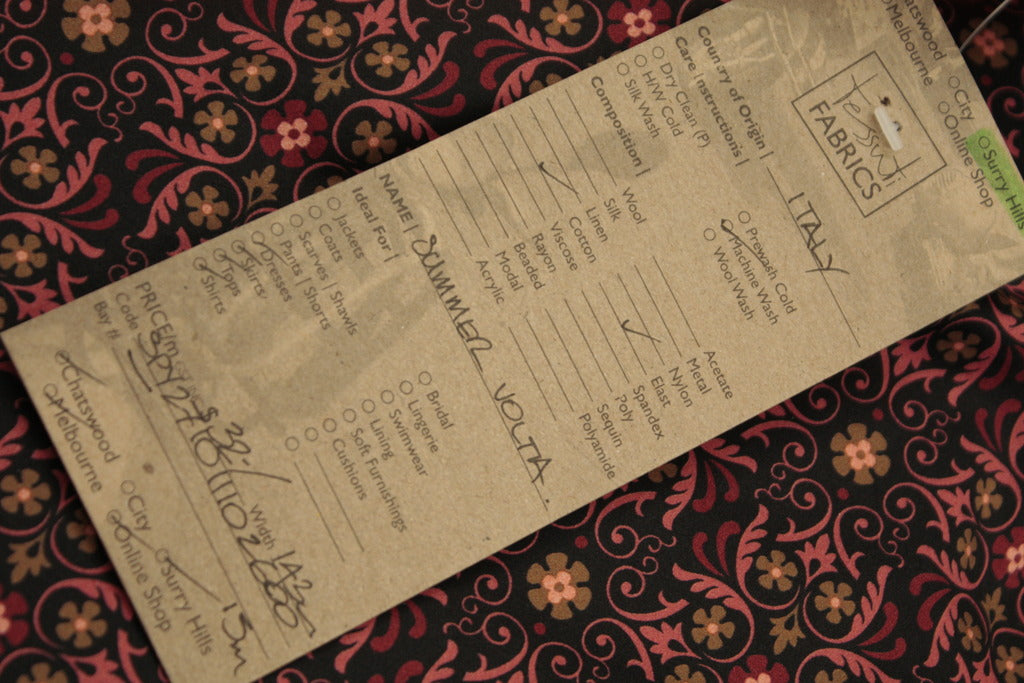 Chatswood
Melbourne
City
Online Shop
Surry Hills
Tessuti
FABRICS
Country of Origin | ITALY
Care Instructions |
Dry Clean (P)
H/W Cold
Silk Wash
Prewash Cold
Machine Wash
Wool Wash
Composition |
Wool
Silk
Linen
Cotton
Viscose
Rayon
Beaded
Modal
Acrylic
Acetate
Metal
Nylon
Elast
Spandex
Poly
Sequin
Polyamide
NAME | SUMMER VOLTA.
Ideal For |
Jackets
Coats
Scarves | Shawls
Pants | Shorts
Dresses
Skirts
Tops
Shirts
Bridal
Lingerie
Swimwear
Lining
Soft Furnishings
Cushions
PRICE/m
Width 142
Code
Bay #
Chatswood
Melbourne
City
Online Shop
Surry Hills